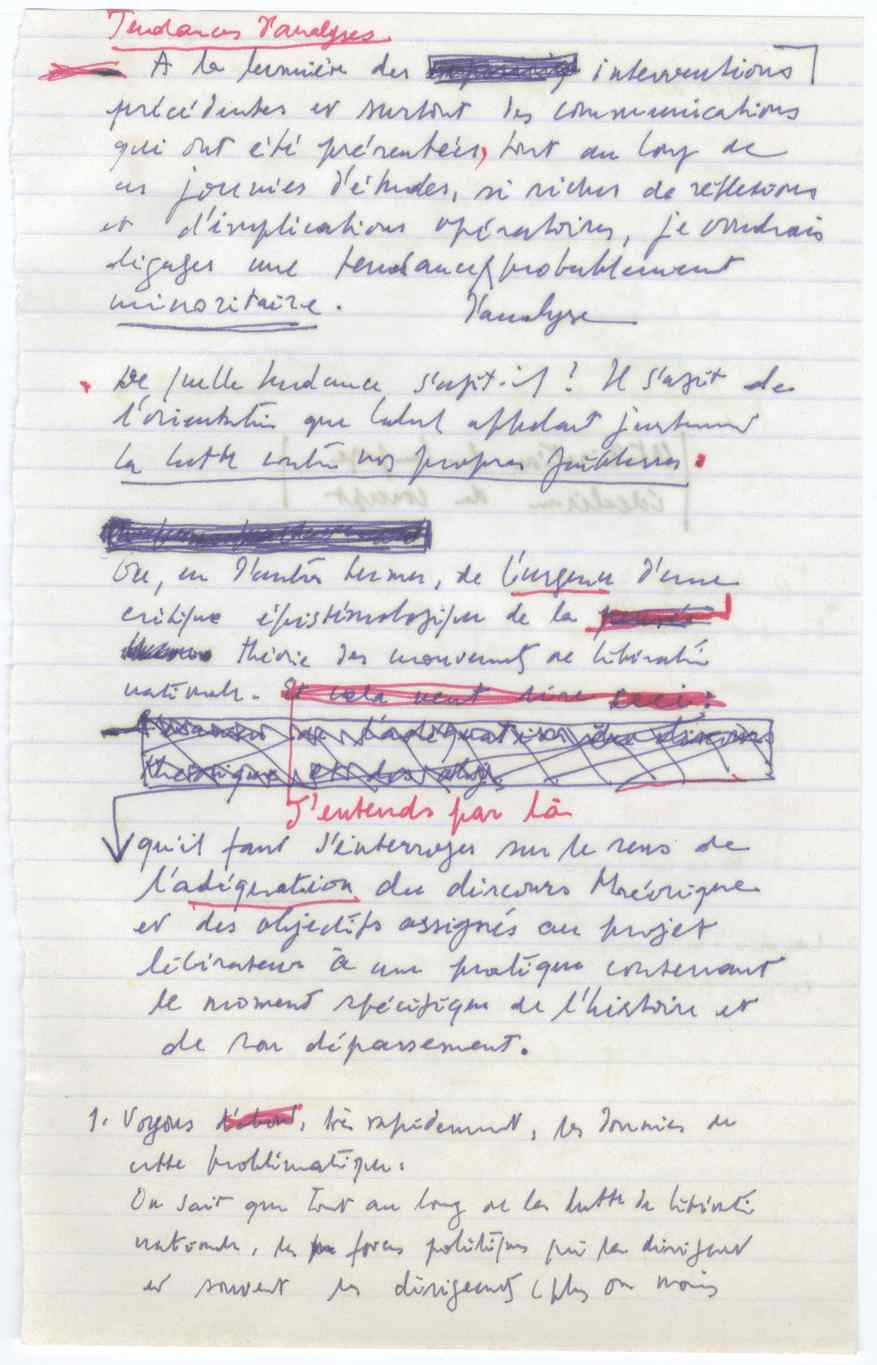 Tendances d'analyses.
A la lumière des interventions
précédentes et surtout des communications
qui ont été présentées, tout au long de
ces journées d'études, si riches de réflexions
et d'implications opératoires, je voudrais
dégager une tendance probablement
minoritaire. d'analyse
De quelle tendance s'agit-il ? Il s'agit de
l'orientation que Cabral appelait justement
la lutte contre nos propres faiblesses.
Ou, en d'autres termes, de l'urgence d'une
critique épistémologique de la
théorie des mouvements de libération
nationale. Et cela veut dire ceci :
de l'adéquation du discours
théorique et des
J'entends par là
qu'il faut s'interroger sur le sens de
l'adéquation du discours théorique
et des objectifs assignés au projet
libérateur à une pratique contenant
le moment spécifique de l'histoire et
de son dépassement.
1. Voyons d'abord, très rapidement, les données de
cette problématique.
On sait que tout au long de la lutte de libération
nationale, les forces politiques qui la dirigent
et souvent les dirigeants (plus ou moins